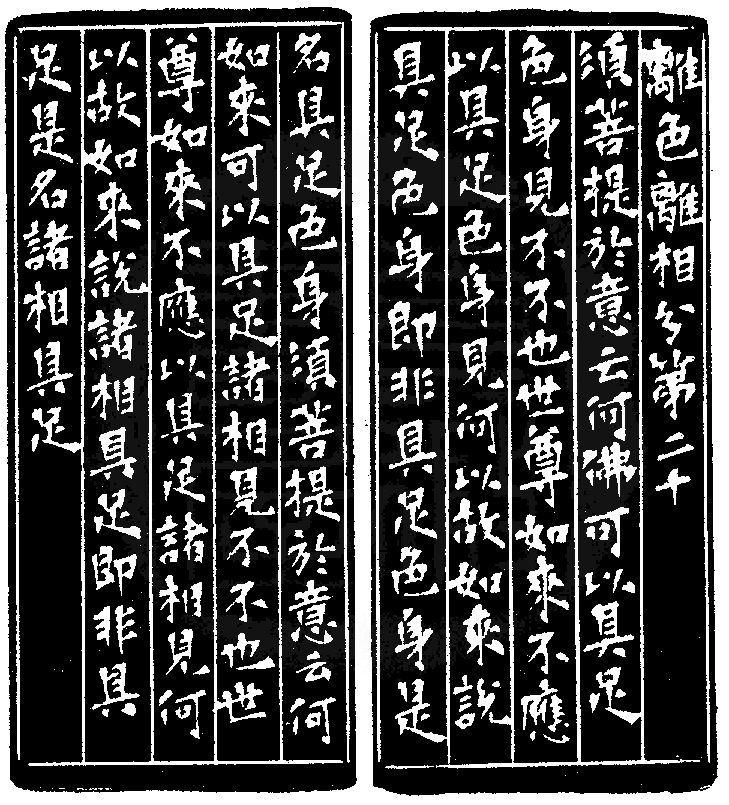 離色離相分第二十
須菩提於意云何佛可以具足
色身見不不也世尊如來不應
以具足色身見何以故如來說
具足色身即非具足色身是
名具足色身須菩提於意云何
如來可以具足諸相見不不也世
尊如來不應以具足諸相見何
以故如來說諸相具足即非具
足是名諸相具足